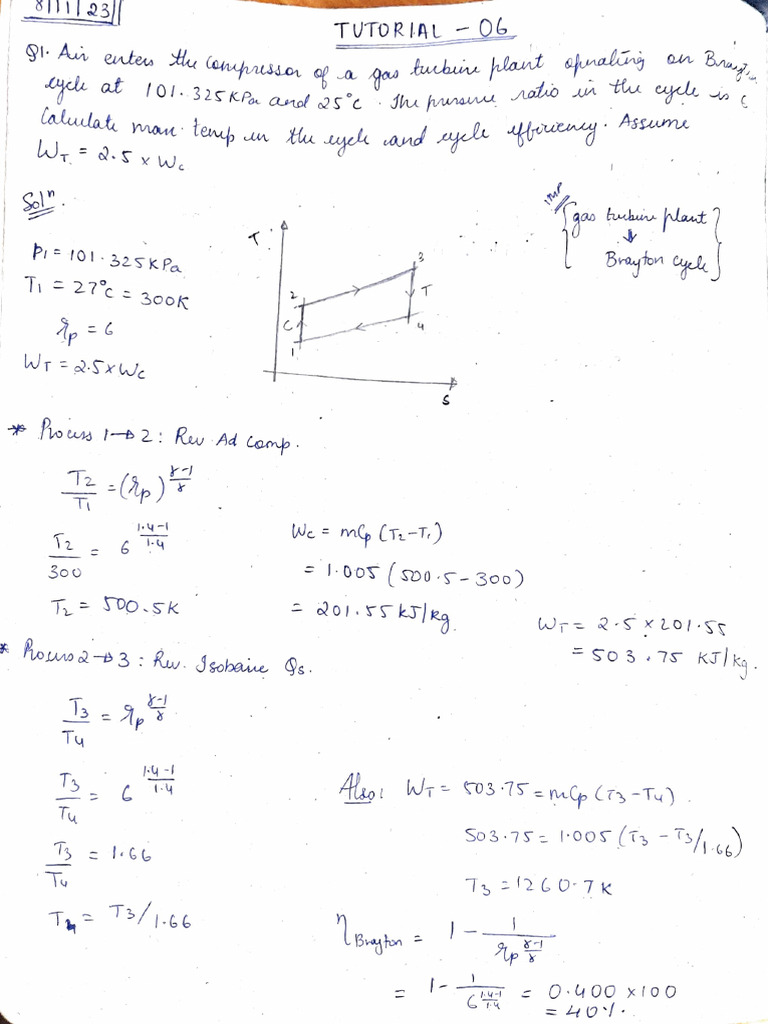 8/11/23
TUTORIAL - 06
Q1. Air enters the compressor of a gas turbine plant operating on Brayton
cycle at 101.325KPa and 25°C. The pressure ratio in the cycle is
Calculate max. temp in the cycle and cycle efficiency. Assume
WT = 2.5 x Wc
Solⁿ.
IMP
{gas turbine plant}
↓
{Brayton cycle}
P1 = 101.325KPa
T1 = 27°C = 300K
rp = 6
WT = 2.5xWc
T
3
2
T
C
4
1
S
* Process 1→2: Rev. Ad comp.
T2/T1 = (rp)^(γ-1/γ)
T2/300 = 6^(1.4-1/1.4)
T2 = 500.5K
Wc = mCp (T2-T1)
= 1.005 (500.5-300)
= 201.55 kJ/kg.
WT = 2.5 x 201.55
= 503.75 KJ/kg.
* Process 2→3: Rev. Isobaric Qs.
T3/T4 = rp^(γ-1/γ)
T3/T4 = 6^(1.4-1/1.4)
T3/T4 = 1.66
T4 = T3/1.66
Also: WT = 503.75 = mCp (T3-T4).
503.75 = 1.005 (T3 - T3/1.66)
T3 = 1260.7K
ηBrayton = 1 - 1/rp^(γ-1/γ)
= 1 - 1/6^(1.4-1/1.4) = 0.400 x100
= 40%.